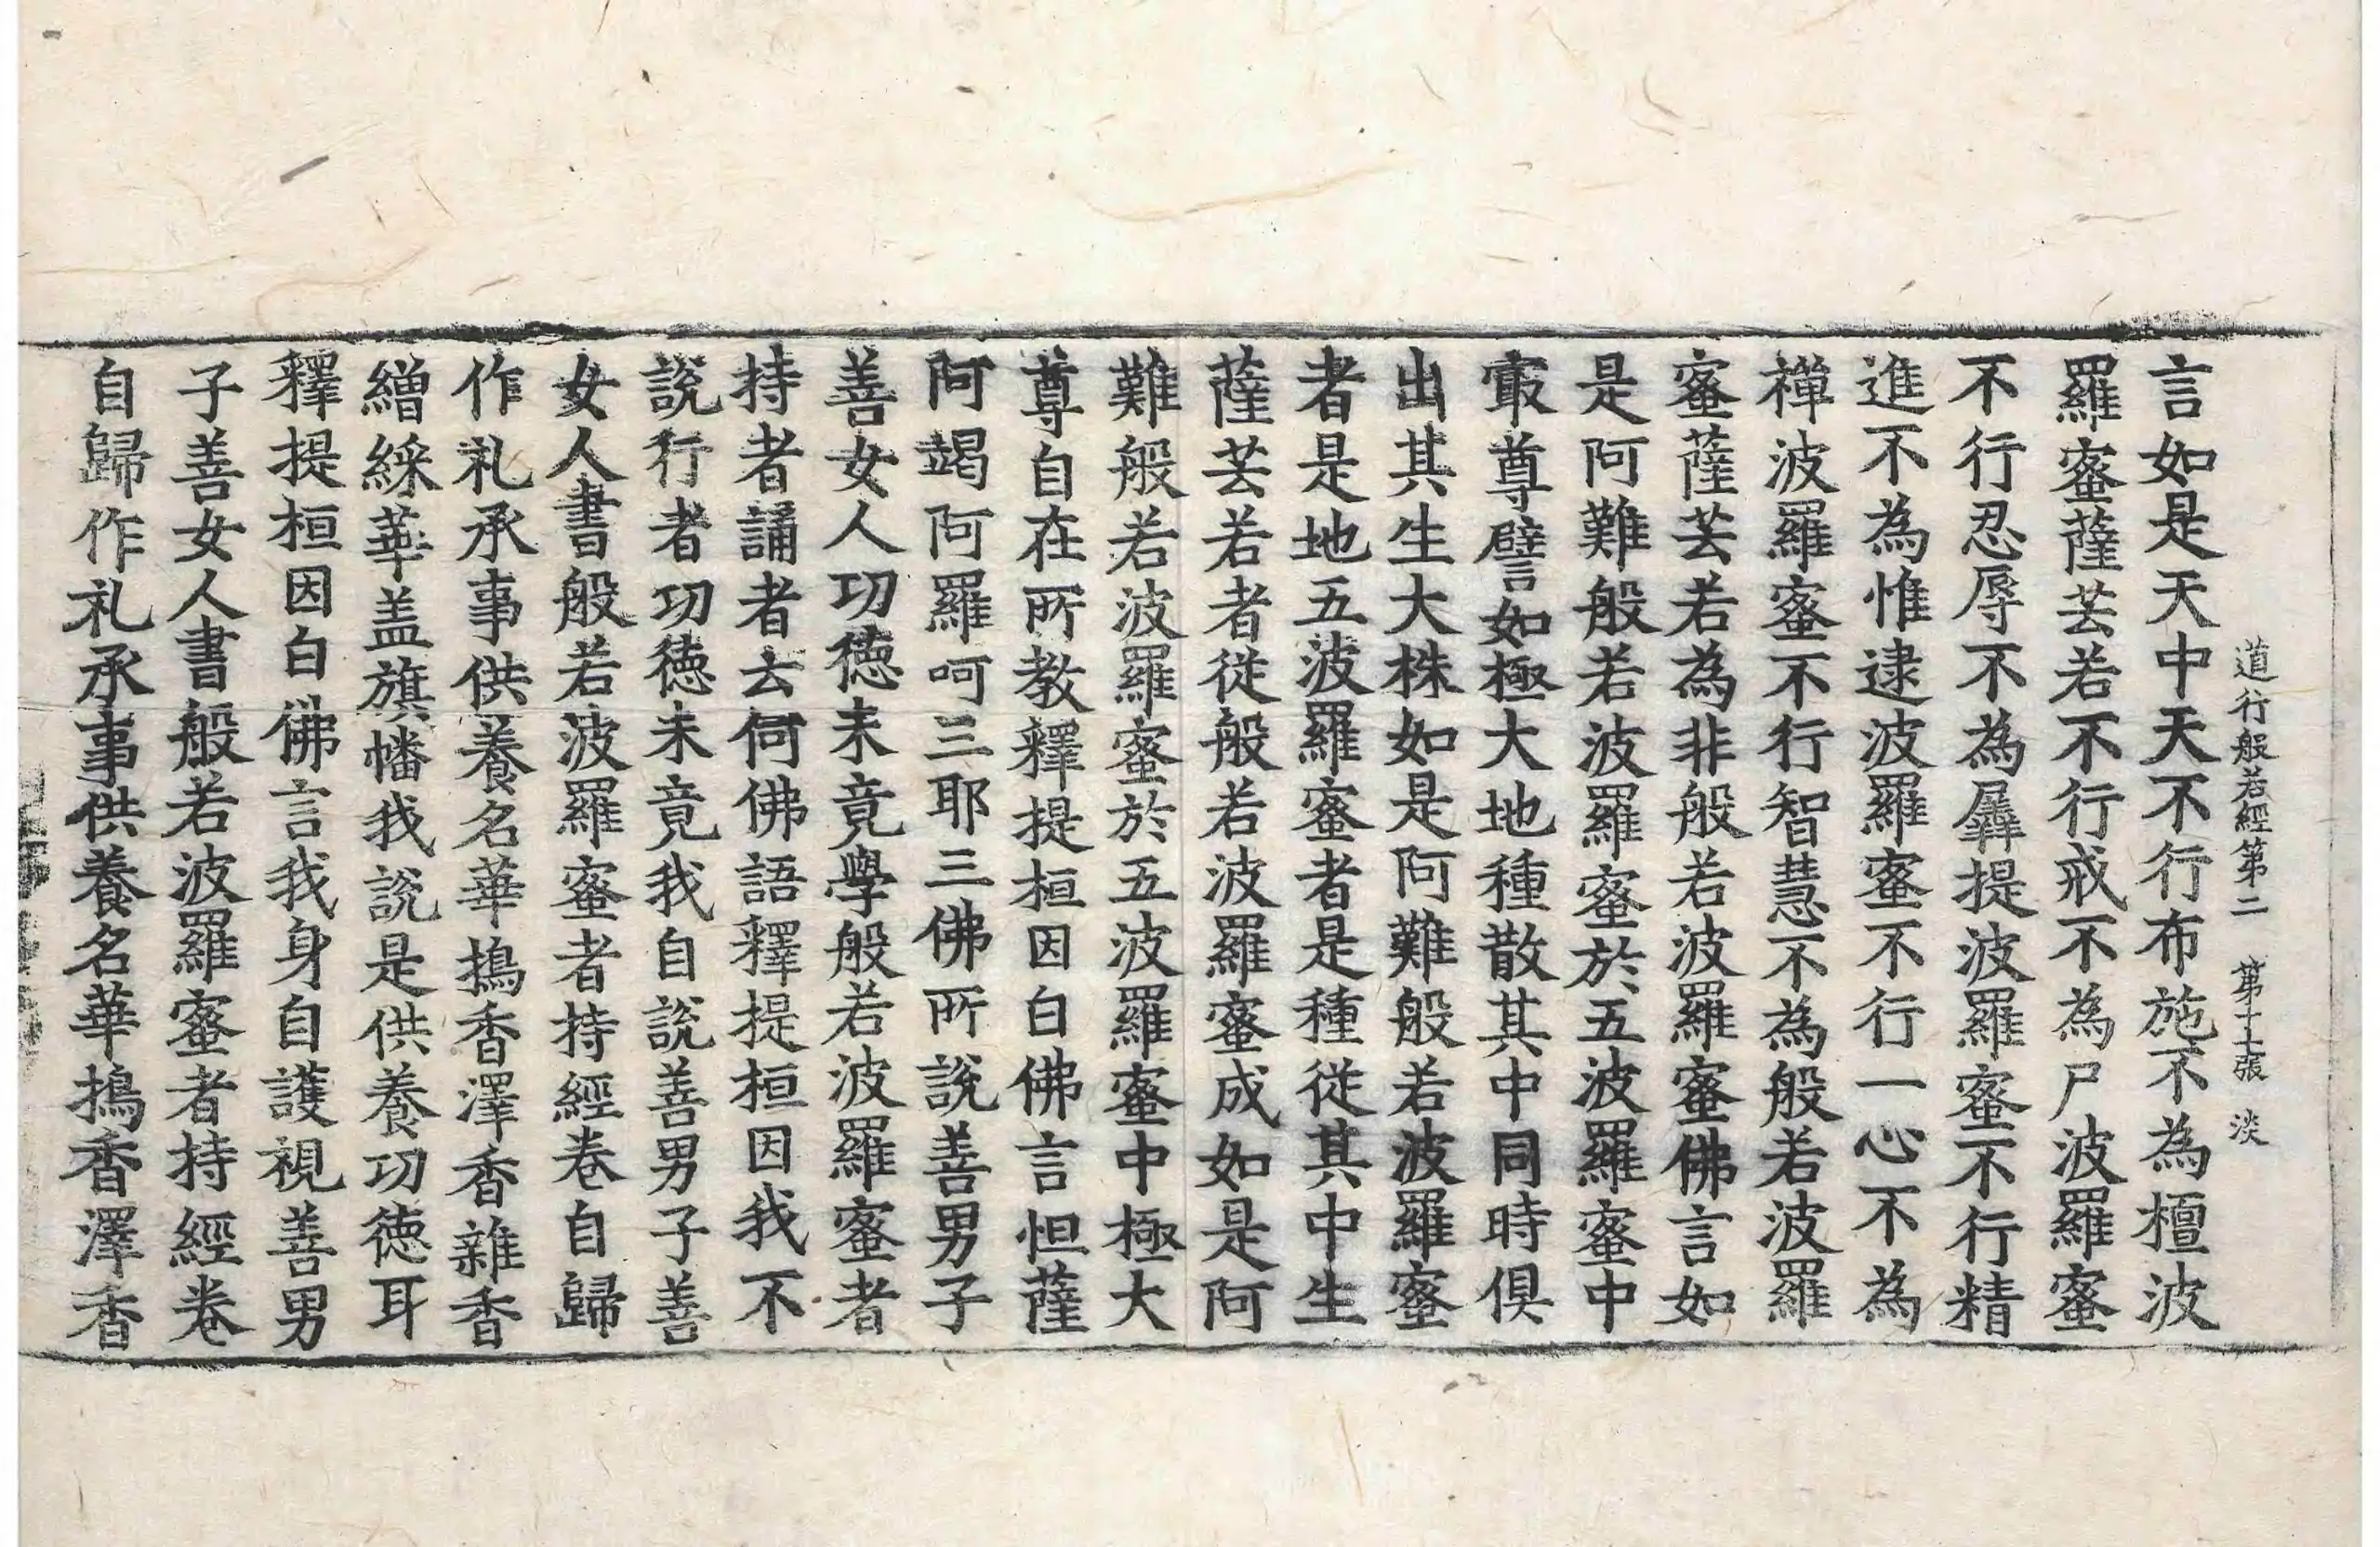 道行般若經第二 第十二張 淡
言如是天中天不行布施不為檀波
羅蜜薩芸若不行戒不為尸波羅蜜
不行忍辱不為羼提波羅蜜不行精
進不為惟逮波羅蜜不行一心不為
禪波羅蜜不行智慧不為般若波羅
蜜薩芸若為非般若波羅蜜佛言如
是阿難般若波羅蜜於五波羅蜜中
㝡尊譬如極大地種散其中同時俱
出其生大株如是阿難般若波羅蜜
者是地五波羅蜜者是種從其中生
薩芸若者從般若波羅蜜成如是阿
難般若波羅蜜於五波羅蜜中極大
尊自在所教釋提桓因白佛言怛薩
阿竭阿羅呵三耶三佛所說善男子
善女人功德未竟學般若波羅蜜者
持者誦者云何佛語釋提桓因我不
說行者功德未竟我自說善男子善
女人書般若波羅蜜者持經卷自歸
作礼承事供養名華搗香澤香雜香
繒綵華盖旗幡我說是供養功德耳
釋提桓因白佛言我身自護視善男
子善女人書般若波羅蜜者持經卷
自歸作礼承事供養名華搗香澤香